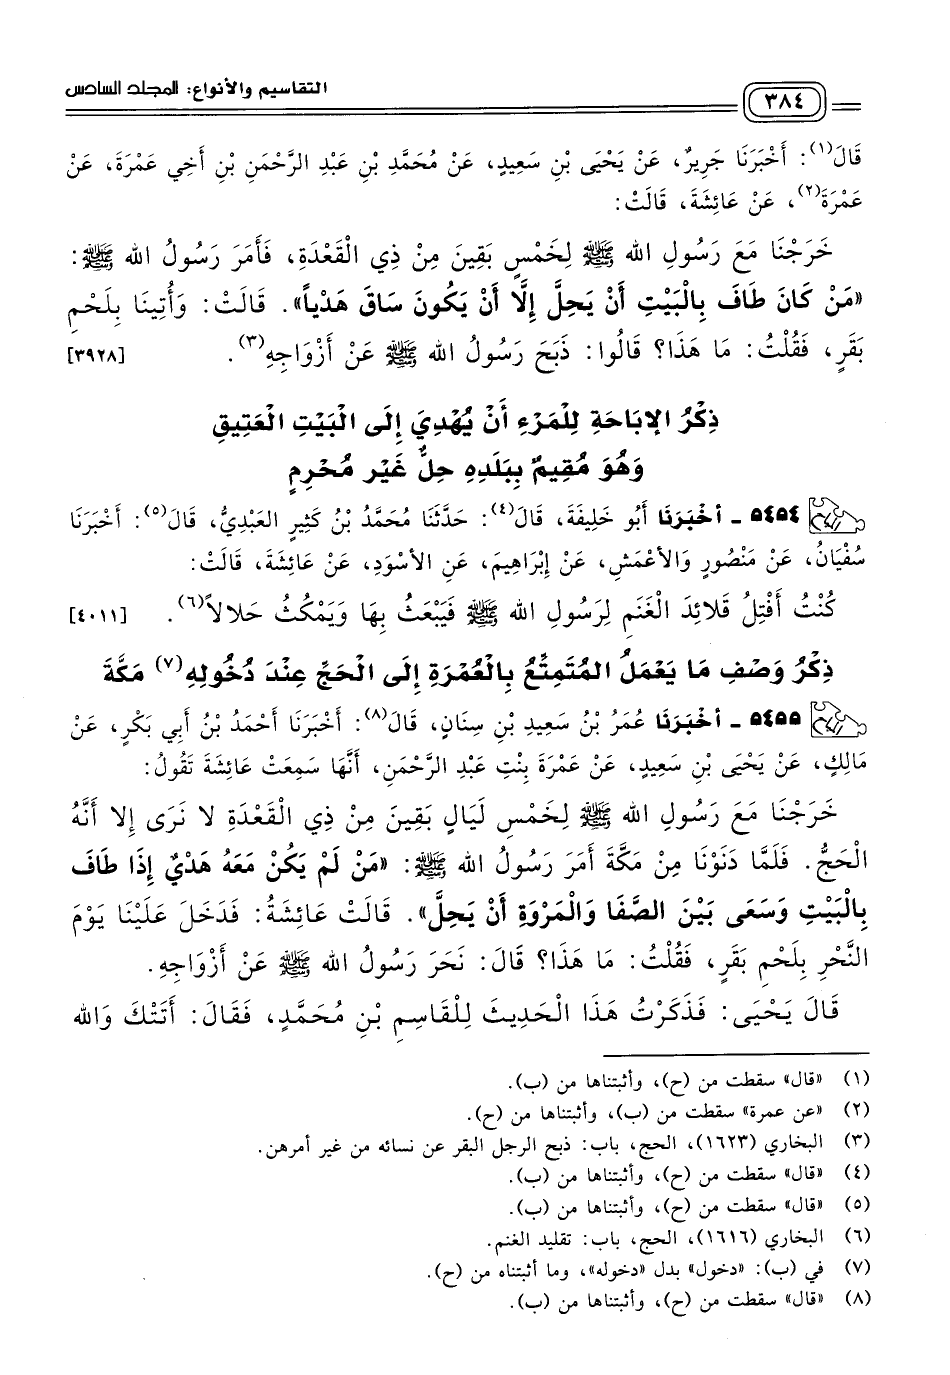 التقاسيم والأنواع: المجلد السادس
٣٨٤
قَالَ(١): أَخْبَرَنَا جَرِيرٌ، عَنْ يَحْيَى بْنِ سَعِيدٍ، عَنْ مُحَمَّدِ بْنِ عَبْدِ الرَّحْمَنِ بْنِ أَخِي عَمْرَةَ، عَنْ
عَمْرَةَ(٢)، عَنْ عَائِشَةَ، قَالَتْ:
خَرَجْنَا مَعَ رَسُولِ الله ﷺ لِخَمْسٍ بَقِينَ مِنْ ذِي الْقَعْدَةِ، فَأَمَرَ رَسُولُ الله ﷺ:
«مَنْ كَانَ طَافَ بِالْبَيْتِ أَنْ يَحِلَّ إِلَّا أَنْ يَكُونَ سَاقَ هَدْياً». قَالَتْ: وَأُتِينَا بِلَحْمِ
بَقَرٍ، فَقُلْتُ: مَا هَذَا؟ قَالُوا: ذَبَحَ رَسُولُ الله ﷺ عَنْ أَزْوَاجِهِ(٣). [٣٩٢٨]
ذِكْرُ الإبَاحَةِ لِلْمَرْءِ أَنْ يُهْدِيَ إِلَى الْبَيْتِ الْعَتِيقِ
وَهُوَ مُقِيمٌ بِبَلَدِهِ حِلٌّ غَيْر مُحْرِمٍ
٥٤٥٤ - أخْبَرَنَا أَبُو خَلِيفَةَ، قَالَ(٤): حَدَّثَنَا مُحَمَّدُ بْنُ كَثِيرٍ العَبْدِيُّ، قَالَ(٥): أَخْبَرَنَا
سُفْيَانُ، عَنْ مَنْصُورٍ وَالأَعْمَشِ، عَنْ إِبْرَاهِيمَ، عَنِ الأَسْوَدِ، عَنْ عَائِشَةَ، قَالَتْ:
كُنْتُ أَفْتِلُ قَلائِدَ الْغَنَمِ لِرَسُولِ الله ﷺ فَيَبْعَثُ بِهَا وَيَمْكُثُ حَلالاً(٦). [٤٠١١]
ذِكْرُ وَصْفِ مَا يَعْمَلُ المُتَمِتِّعُ بِالْعُمْرَةِ إِلَى الْحَجِّ عِنْدَ دُخُولِهِ(٧) مَكَّةَ
٥٤٥٥ - أخْبَرَنَا عُمَرُ بْنُ سَعِيدِ بْنِ سِنَانٍ، قَالَ(٨): أَخْبَرَنَا أَحْمَدُ بْنُ أَبِي بَكْرٍ، عَنْ
مَالِكٍ، عَنْ يَحْيَى بْنِ سَعِيدٍ، عَنْ عَمْرَةَ بِنْتِ عَبْدِ الرَّحْمَنِ، أَنَّهَا سَمِعَتْ عَائِشَةَ تَقُولُ:
خَرَجْنَا مَعَ رَسُولِ الله ﷺ لِخَمْسِ لَيَالٍ بَقِينَ مِنْ ذِي الْقَعْدَةِ لا نَرَى إِلا أَنَّهُ
الْحَجُّ. فَلَمَّا دَنَوْنَا مِنْ مَكَّةَ أَمَرَ رَسُولُ الله ﷺ: «مَنْ لَمْ يَكُنْ مَعَهُ هَدْيٌ إِذَا طَافَ
بِالْبَيْتِ وَسَعَى بَيْنَ الصَّفَا وَالْمَرْوَةِ أَنْ يَحِلَّ». قَالَتْ عَائِشَةُ: فَدَخَلَ عَلَيْنَا يَوْمَ
النَّحْرِ بِلَحْمِ بَقَرٍ، فَقُلْتُ: مَا هَذَا؟ قَالَ: نَحَرَ رَسُولُ الله ﷺ عَنْ أَزْوَاجِهِ.
قَالَ يَحْيَى: فَذَكَرْتُ هَذَا الْحَدِيثَ لِلْقَاسِمِ بْنِ مُحَمَّدٍ، فَقَالَ: أَتَتْكَ وَالله
(١) «قال» سقطت من (ح)، وأثبتناها من (ب).
(٢) «عن عمرة» سقطت من (ب)، وأثبتناها من (ح).
(٣) البخاري (١٦٢٣)، الحج، باب: ذبح الرجل البقر عن نسائه من غير أمرهن.
(٤) «قال» سقطت من (ح)، وأثبتناها من (ب).
(٥) «قال» سقطت من (ح)، وأثبتناها من (ب).
(٦) البخاري (١٦١٦)، الحج، باب: تقليد الغنم.
(٧) في (ب): «دخول» بدل «دخوله»، وما أثبتناه من (ح).
(٨) «قال» سقطت من (ح)، وأثبتناها من (ب).